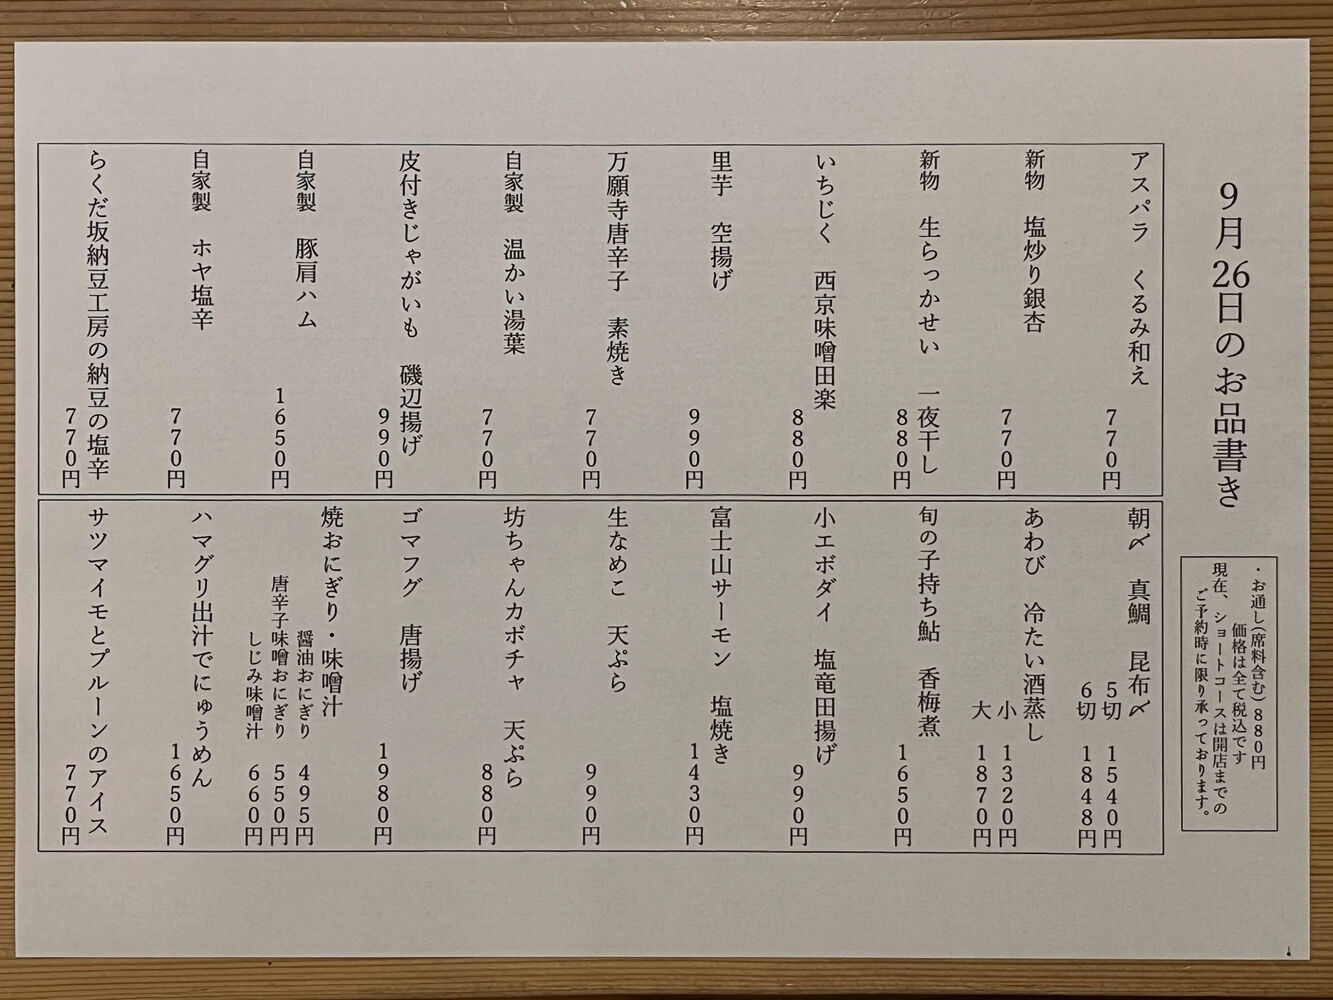 9月26日のお品書き
・お通し(席料含む)880円
価格は全て税込です
現在、ショートコースは開店までの
ご予約時に限り承っております。
アスパラ　くるみ和え
770円
新物　塩炒り銀杏
770円
新物　生らっかせい　一夜干し
880円
いちじく　西京味噌田楽
880円
里芋　空揚げ
990円
万願寺唐辛子　素焼き
770円
自家製　温かい湯葉
770円
皮付きじゃがいも　磯辺揚げ
990円
自家製　豚肩ハム
1650円
自家製　ホヤ塩辛
770円
らくだ坂納豆工房の納豆の塩辛
770円
朝〆　真鯛　昆布〆
5切　1540円
6切　1848円
あわび　冷たい酒蒸し
小　1320円
大　1870円
旬の子持ち鮎　香梅煮
1650円
小エボダイ　塩竜田揚げ
990円
富士山サーモン　塩焼き
1430円
生なめこ　天ぷら
990円
坊ちゃんカボチャ　天ぷら
880円
ゴマフグ　唐揚げ
1980円
焼おにぎり・味噌汁
醤油おにぎり　495円
唐辛子味噌おにぎり　550円
しじみ味噌汁　660円
ハマグリ出汁でにゅうめん
1650円
サツマイモとプルーンのアイス
770円